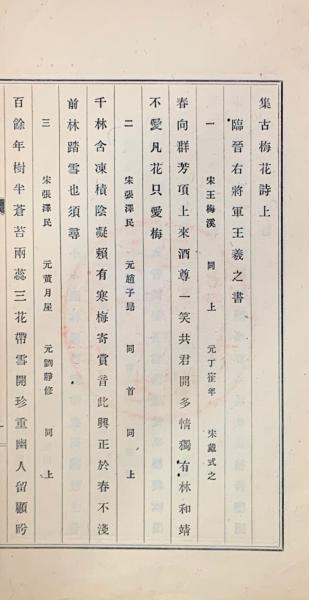 集古梅花詩上
臨晉右將軍王羲之書
一 宋王梅溪 同上 元丁隺年 宋戴式之
春向群芳項上來酒尊一笑共君開多情獨有林和靖
不愛凡花只愛梅
二 宋張澤民 元趙子昂 同首同上
千林含凍積陰凝賴有寒梅寄賞音此興正於春不淺
前林踏雪也須尋
三 宋張澤民 元黃月屋 元劉靜修 同上
百餘年樹半蒼苔兩蕊三花帶雪開珍重幽人留顧盻